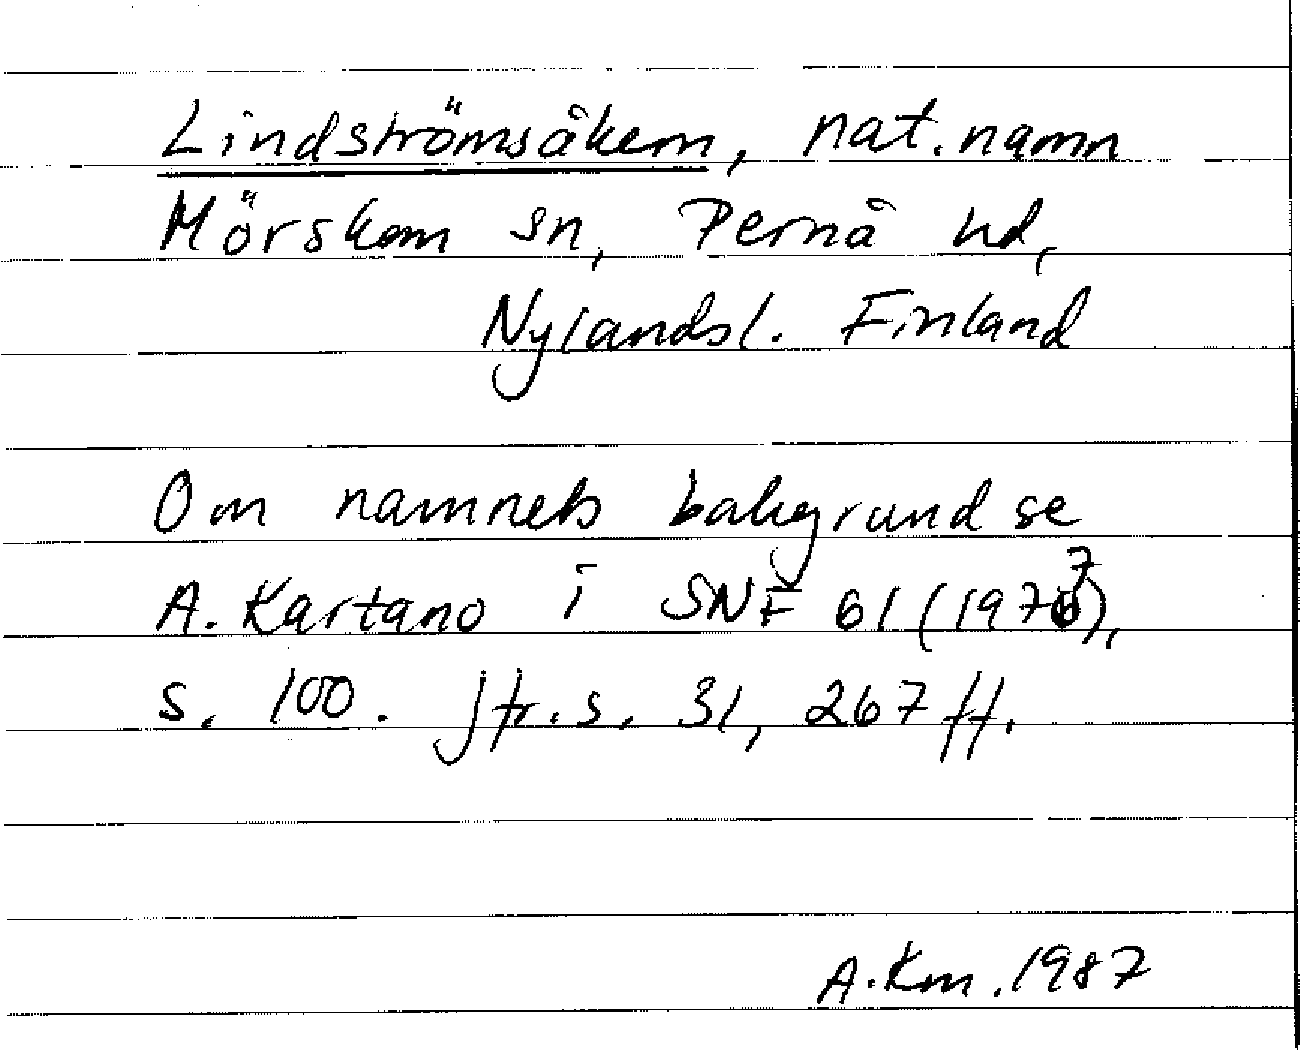 Lindströmsåkern, nat. namn
Mörskom sn, Pernå hd,
Nylandsl. Finland
Om namnets bakgrund se
A. Kartano i SNF 61 (1977),
s. 100. Jfr. s. 31, 267 ff.
A. Km. 1987